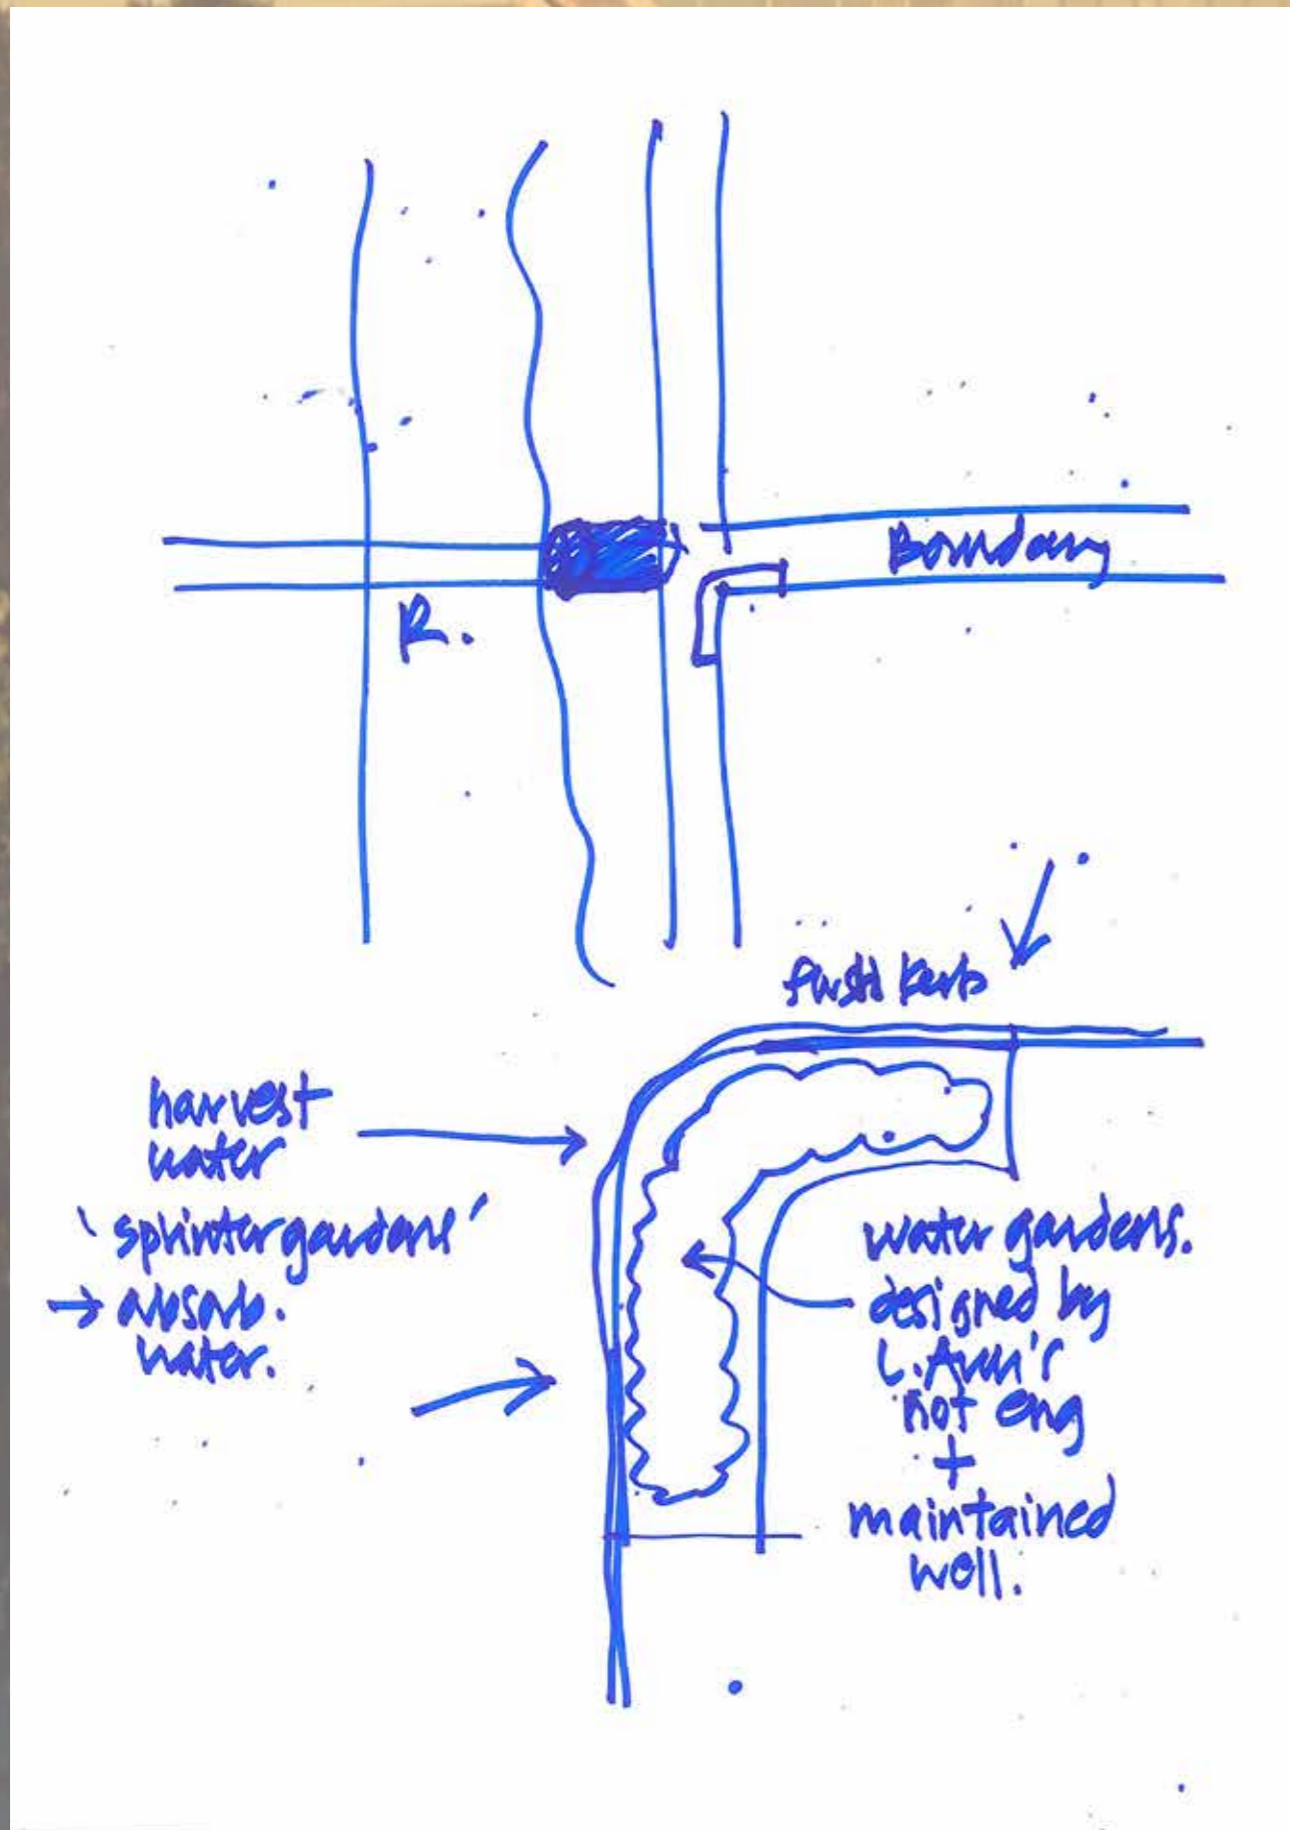 Boundary
R.
flush kerb
harvest
water
'splinter gardens'
→ absorb.
water.
water gardens.
designed by
L.Arch's
not eng
+
maintained
well.